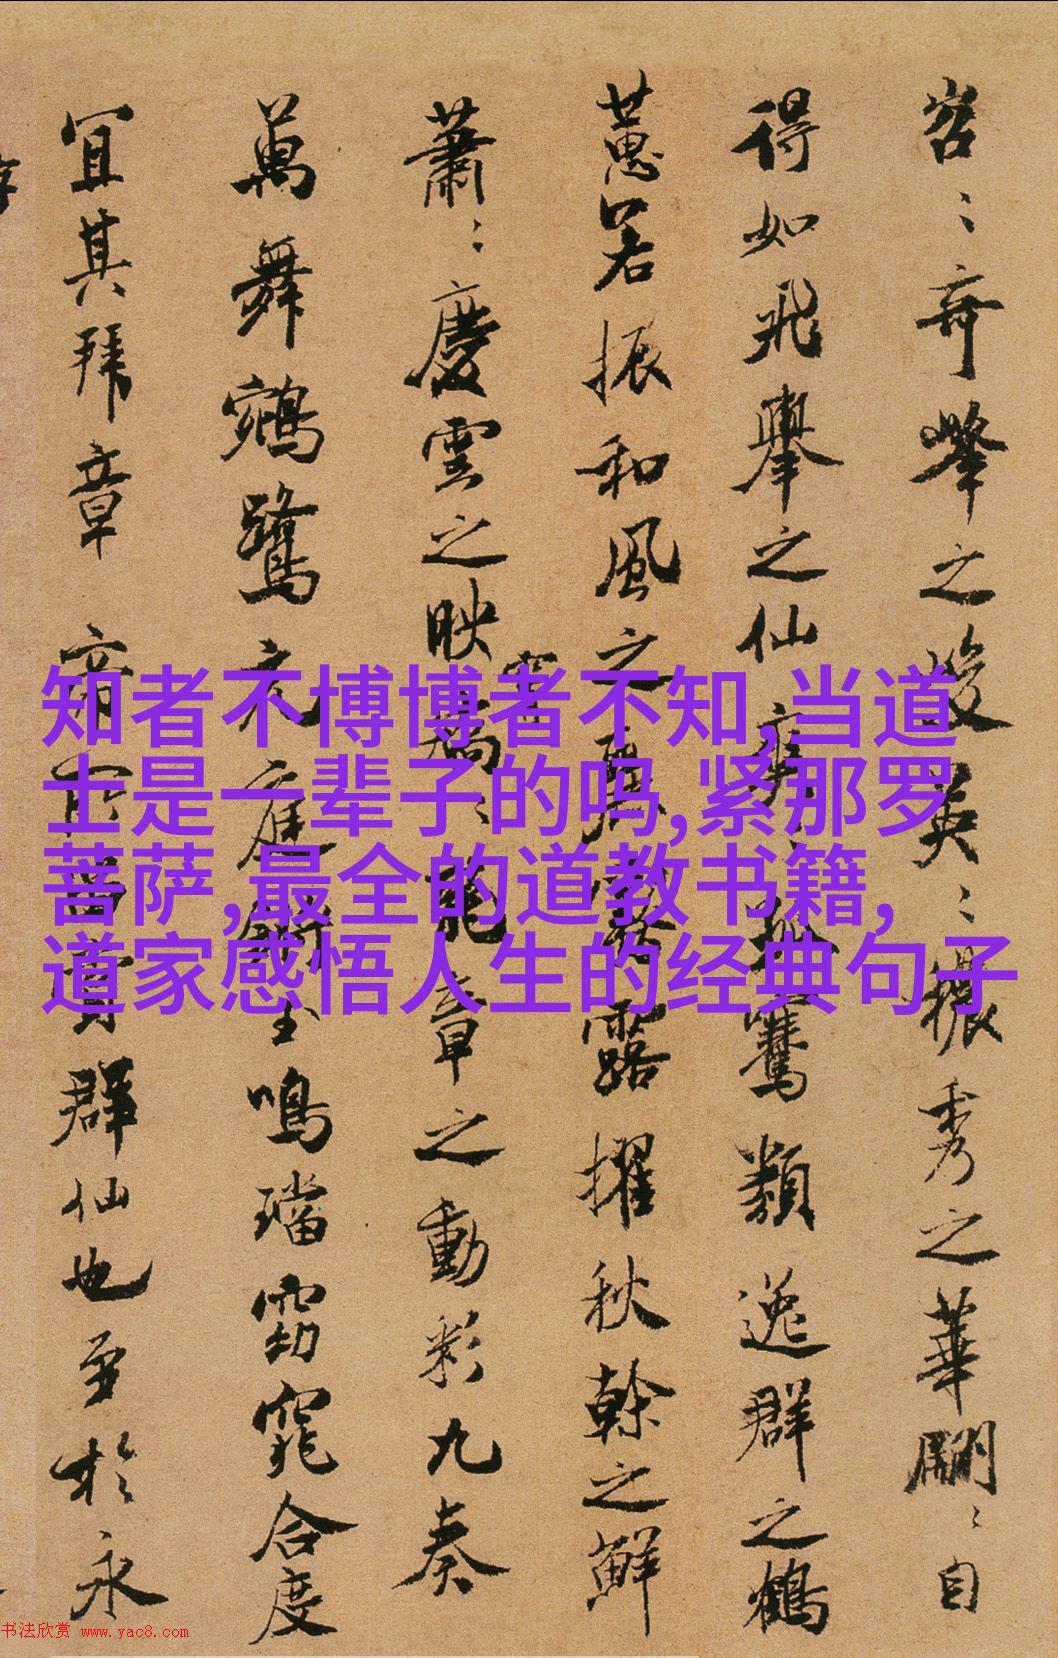 岧〻奇峯之峻英〻穠秀之華翩〻自
得如飛舉之仙
騫類逸群之鶴
蕙若振和風之
露擢秋幹之鮮
蕭〻慶雲之映霄
龍章之動彩九奏
萬舞鵷鷺
玉鳴璫窈窕合度
宜其拜章
群仙也至於永
知者不博博者不知,当道
士是一辈子的吗,紧那罗
菩萨,最全的道教书籍,
道家感悟人生的经典句子
书法欣赏 www.yac8.com